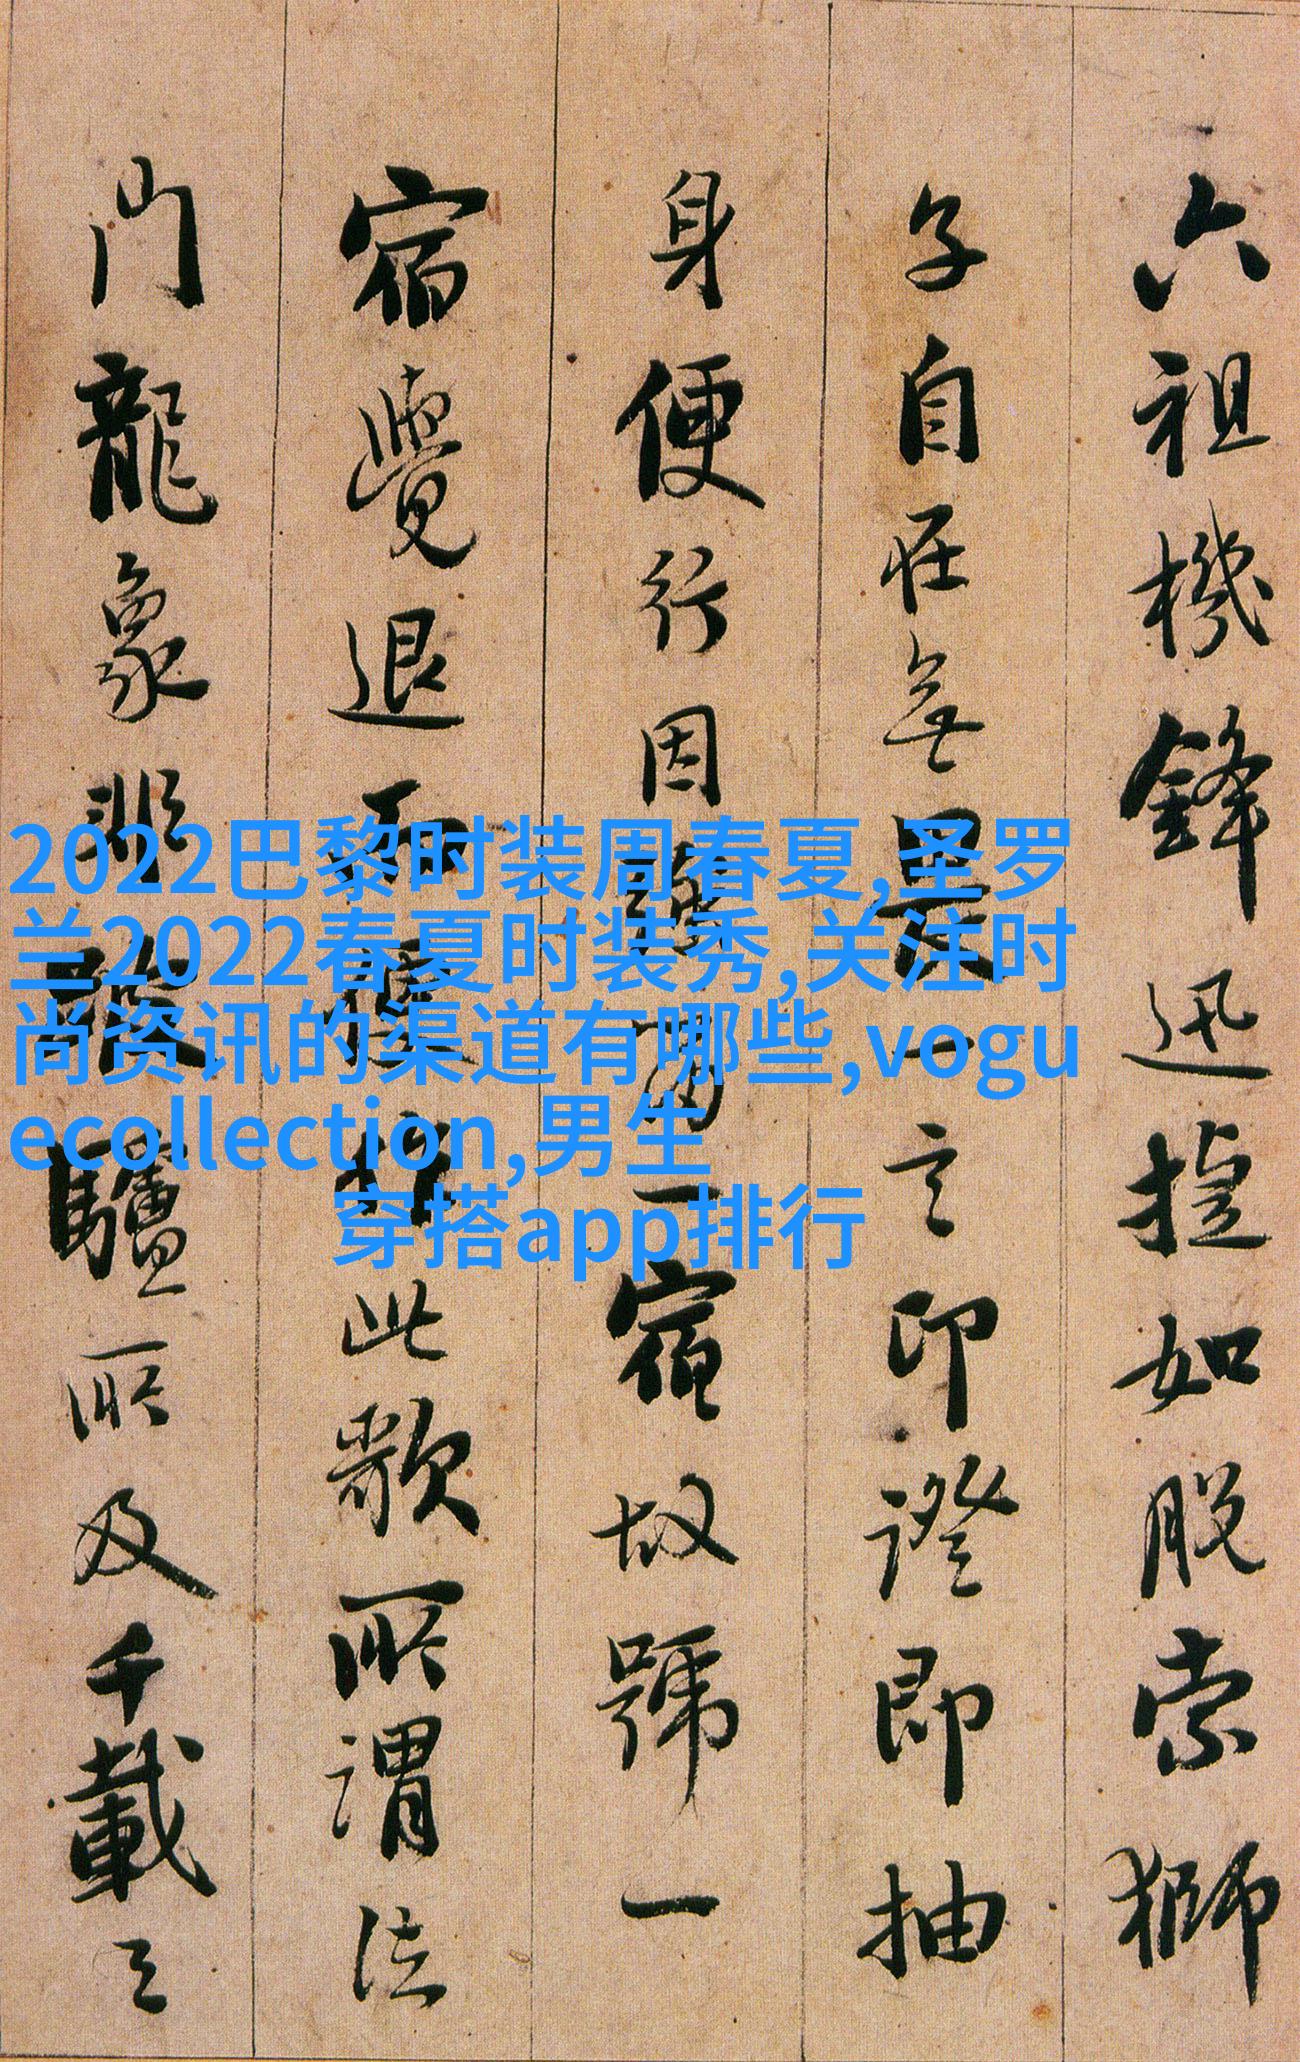 六祖機鋒迅捷如脫索獅
子自在無畏一言印證即抽
身便行因強留一宿故號一
宿覺退而作此歌所謂法
門龍象非跛驢所及千載之
2022巴黎时装周春夏,圣罗
兰2022春夏时装秀,关注时
尚资讯的渠道有哪些,vogu
ecollection,男生
穿搭app排行